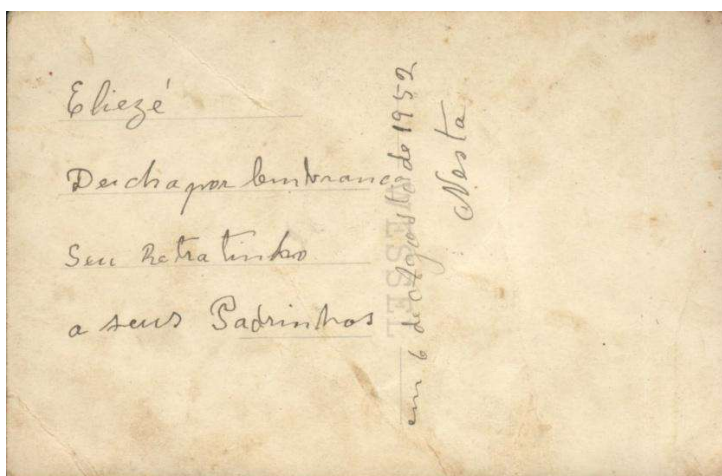 Eliezé
Deicha por lembrança
Seu Retratinho
a seus Padrinhos
em 6 de Agosto de 1952
Nesta